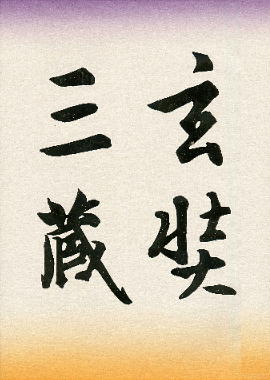 玄奘
三蔵